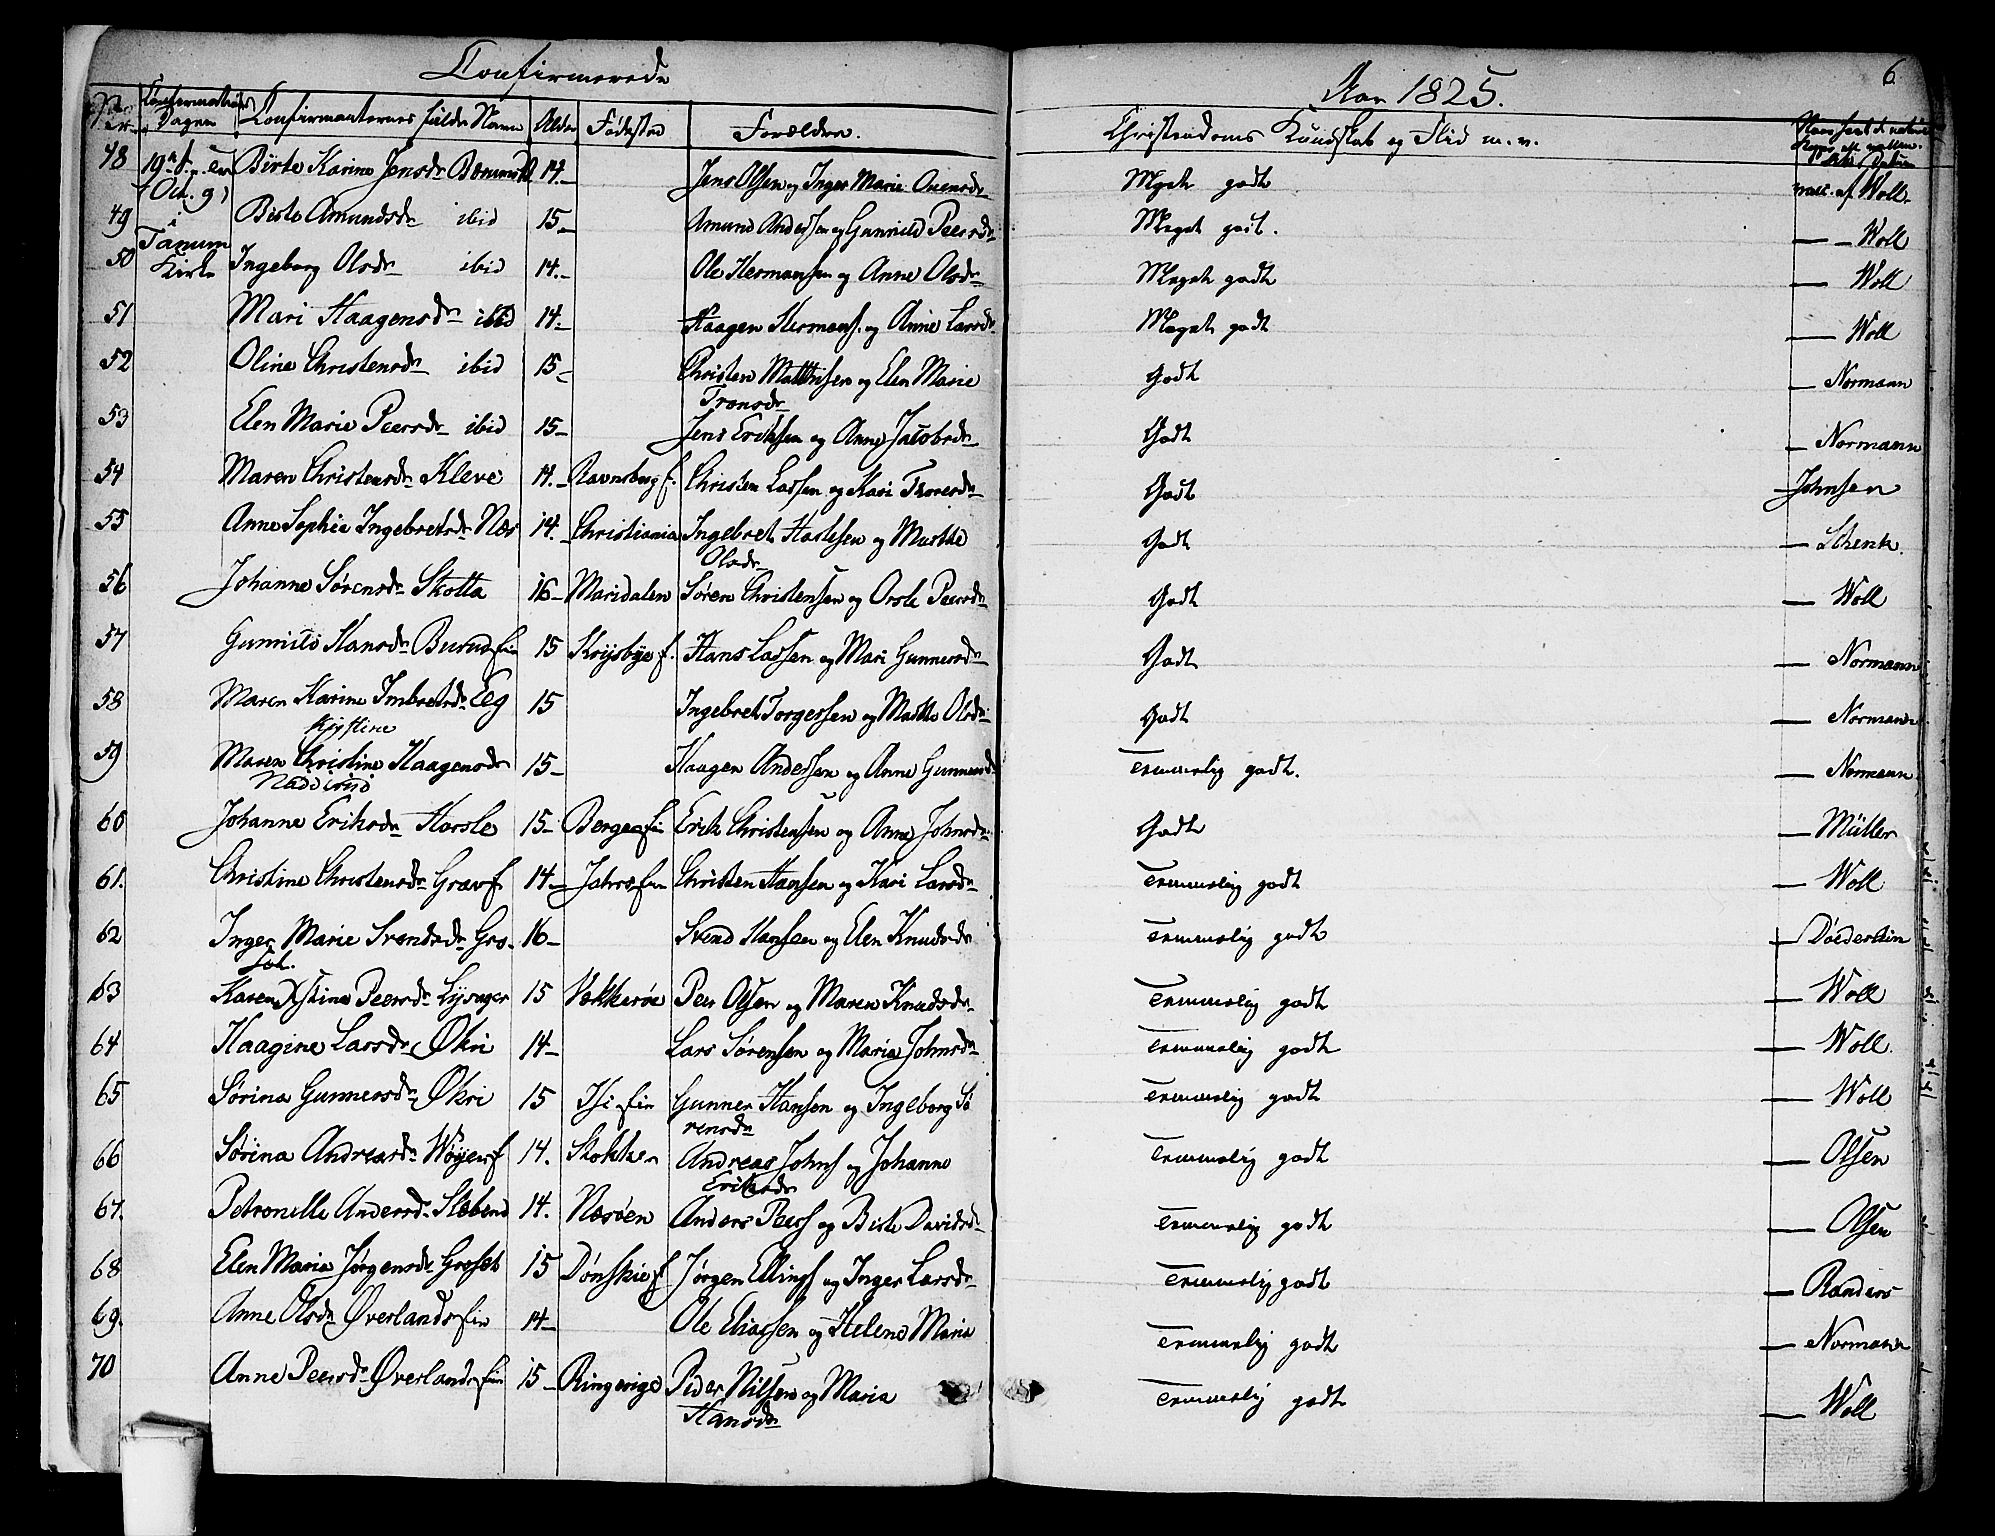 Confirmerede
Aar 1825.
6
Confirmations Dagen Confirmanternes fulde Navn Alder Fødested Forældre. Christendoms Kundskab og Flid m. v.
48 19de S. e. Birte Karine Jensdr 14.- Jens Olsen og Inger Marie Meget godt vacc. af Woll
(Oct. 9)
49 i Birte Amundsdr ibid 15- Amund Anderssen og Gunnild Peersdr Meget godt. — Woll
Tanum
50 Kirke Ingeborg Olsdr ibid 14.- Ole Hermansen og Anne Olsdr Meget godt — Woll
51 Mari Haagensdr ibid 14.- Haagen Hermans. og Anne Larsdr Meget godt — Woll
52 Oline Christensdr ibid 15- Christen Matthisen og Elen Marie Godt — Normann
53 Elen Marie Peersdr ibid 15- Jens Erikssen og Anne Jacobsdr Godt — Normann
54 Maren Christensdr Kleve 14.- Ravnsborg f. Christen Larssen og Kari Godt Johnsen
55 Anne Sophie Ingebretsdr Næs 14.- Christiania Ingebret og Marthe Godt — Schenk.
Olsdr
56 Johanne Sørensdr Skotta 16- Maridalen Søren Christenssen og Peersdr Godt — Woll
57 Gunnild Hansdr 15 Hans Larssen og Mari Gunnersdr Godt — Normann
58 Maren Karine Imbretsdr Eeg 15 Ingebret Torgersen og Marthe Olsdr Godt — Normann
59 Maren Christine Haagensdr 15- Haagen Anderssen og Anne Gunnersdr Temmelig godt. — Normann
60 Johanne Eriksdr Horsle 15- Erik Christenssen og Anne Johnsdr Godt — Müller
61. Christine Christensdr Grav f. 14- Christen Hanssen og Kari Larsdr Temmelig godt — Woll
62 Inger Marie Svendsdr Gro- 16- Svend Hanssen og Elen Knudsdr Temmelig godt
63 Karen Xstine Peersdr Lysager 15 Vækkerøe Peer Olsen og Maren Knudsdr Temmelig godt — Woll
64 Haagine Larsdr Økri 14- Lars Sørenssen og Maria Johnsdr Temmelig godt — Woll.
65 Sørina Gunnersdr Økri 15 Gunner Hanssen og Ingeborg Sø Temmelig godt — Woll
rensdr
66 Sørina Andreasdr Wøyen f 14. Stokker Andreas Johns og Johanne Temmelig godt — Olsen
Eriksdr
67. Petronelle Andersdr Slæbend 14. Næsøen Anders Peers og Birte Davidsdr Temmelig godt — Olsen
68 Elen Maria Jørgensdr Groset 15 Dønskie f Jørgen Ellings og Inger Larsdr Temmelig godt — Randers
69. Anne Olsdr Øverlands ein 14- Ole Eliassen og Helene Maria Temmelig godt — Normann
70 Anne Peersdr Øverlands ein 15- Ringerige Peder Nilssen og Maria Temmelig godt — Woll
Hansdr